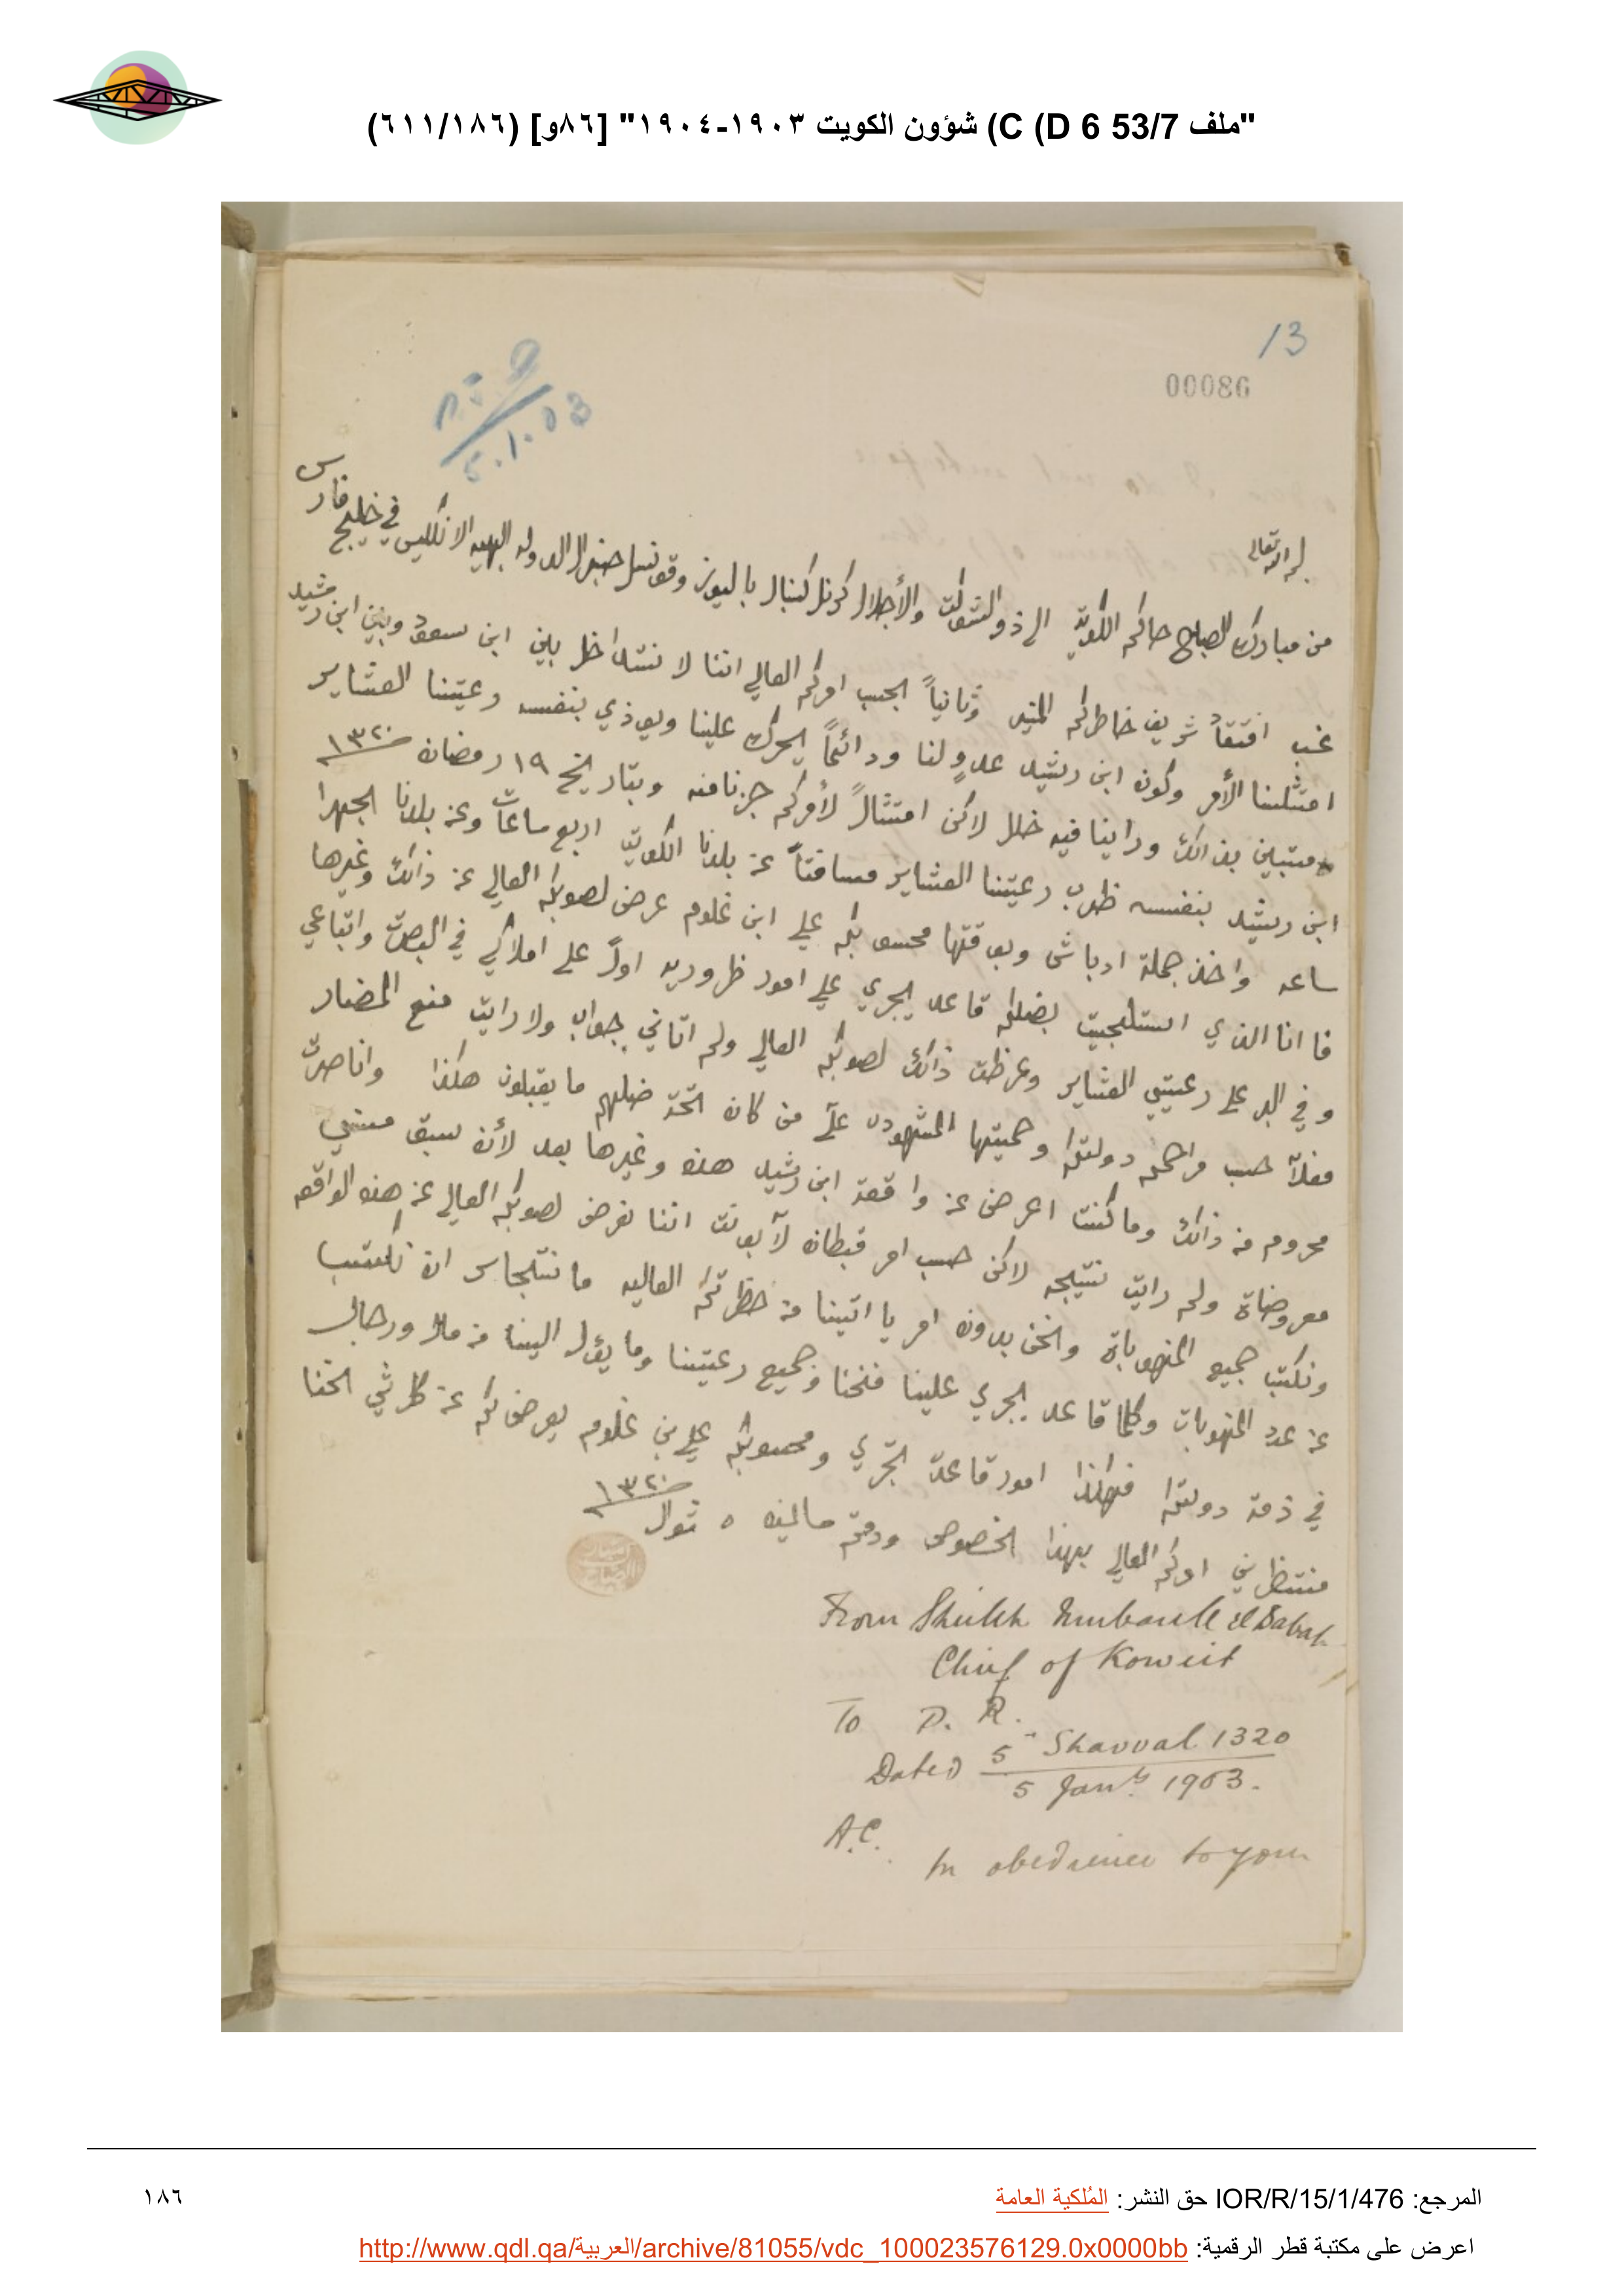 "ملف 53/7 C (D 6) شؤون الكويت ١٩٠٣-١٩٠٤" [٨٦و] (٦١١/١٨٦)
13
00086
5.1.03
بسم الله تعالى
من مبارك الصباح حاكم الكويت الى ذو الشوكت والأجلال كرنل كنبال باليوز وقونسل جنرال الدوله البهيه الانكليس في خليج فارس
غب افتقاد شريف خاطركم المنير وثانياً بحسب امركم العالي اننا لا نتداخل بين ابن سعود وبين ابن رشيد
امتثلنا الأمر وكون ابن رشيد عدوٍ لنا ودائماً يتحرك علينا ويوذي بنفسه رعيتنا العشاير
متبين بذالك وراينا فيه خلل لاكن امتثالاً لأمركم جزنا منه وبتاريخ ١٩ رمضان ١٣٢٠
ابن رشيد بنفسه ظرب رعيتنا العشاير مسافتاً عن بلدنا الكويت اربع ساعات وعن بلدنا الجهرا
ساعه واخذ جملة ادباش وبوقتها محسوبكم علي ابن غلوم عرض لصوبكم العالي عن ذالك وغيرها
فانا الذي استلجيت بضلكم قاعد يجري علي امور ظروريه اولاً على املاكي في البصرة واتباعي
وفي البر على رعيتي العشاير وعرظت ذالك لصوبكم العالي ولم اتاني جواب ولا رايت منع المضار
فعلاً حسب مراحم دولتكم وحميتها المشهوده علا من كان تحت ضلهم ما يقبلون هكذا وانا صرت
محروم من ذالك وما كنت اعرض عن واقعة ابن رشيد هذه وغيرها بعد لأن سبق مني
معروضاة ولم رايت نتيجه لاكن حسب امر قبطان لابونت اننا نعرض لصوبكم العالي عن هذه الواقعه
ونكتب جميع المنهوباة ونحن بدون امر ياتينا من حظرتكم العاليه ما نتجاسر ان نكتب
عن عدد المنهوبات وكلما قاعد يجري علينا فنحنا وجميع رعيتنا وما يؤل الينا من مال ورحال
في ذمة دولتكم فهاكذا امور قاعدة تجري ومحسوبكم علي بن غلوم يعرض لكم عن كل شي نحنا
منتظرين امركم العالي بهذا الخصوص ودمتم سالمين ٥ شوال ١٣٢٠
From Sheikh Mubarak el Sabah
Chief of Koweit
To P. R.
Dated 5th Shavval 1320
5 Jany. 1903.
A.C.
In obedience to your
المرجع: IOR/R/15/1/476 حق النشر: المُلكية العامة
١٨٦
اعرض على مكتبة قطر الرقمية: http://www.qdl.qa/العربية/archive/81055/vdc_100023576129.0x0000bb